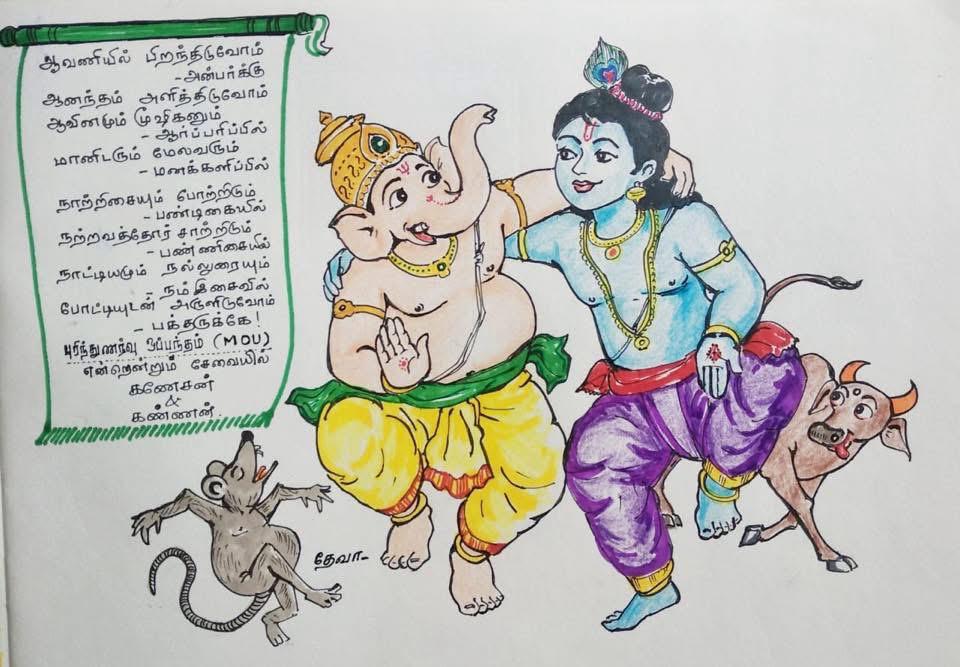 ஆவணியில் பிறந்திடுவோம்
-அன்பர்க்கு
ஆனந்தம் அளித்திடுவோம்
ஆவினமும் மூஷிகனும்
- ஆர்ப்பரிப்பில்
மானிடரும் மேலவரும்
- மனக்களிப்பில்
நாற்றிசையும் போற்றிடும்
- பண்டிகையில்
நற்றவத்தோர் சாற்றிடும்
- பண்ணிசையில்
நாட்டியமும் நல்லுரையும்
- நம் இசைவில்
போட்டியுடன் அருளிடுவோம்
- பக்தருக்கே!
புரிந்துணர்வு ஒப்பந்தம் (MOU)
என்றென்றும் சேவையில்
கணேசன்
&
கண்ணன்.
தேவா-